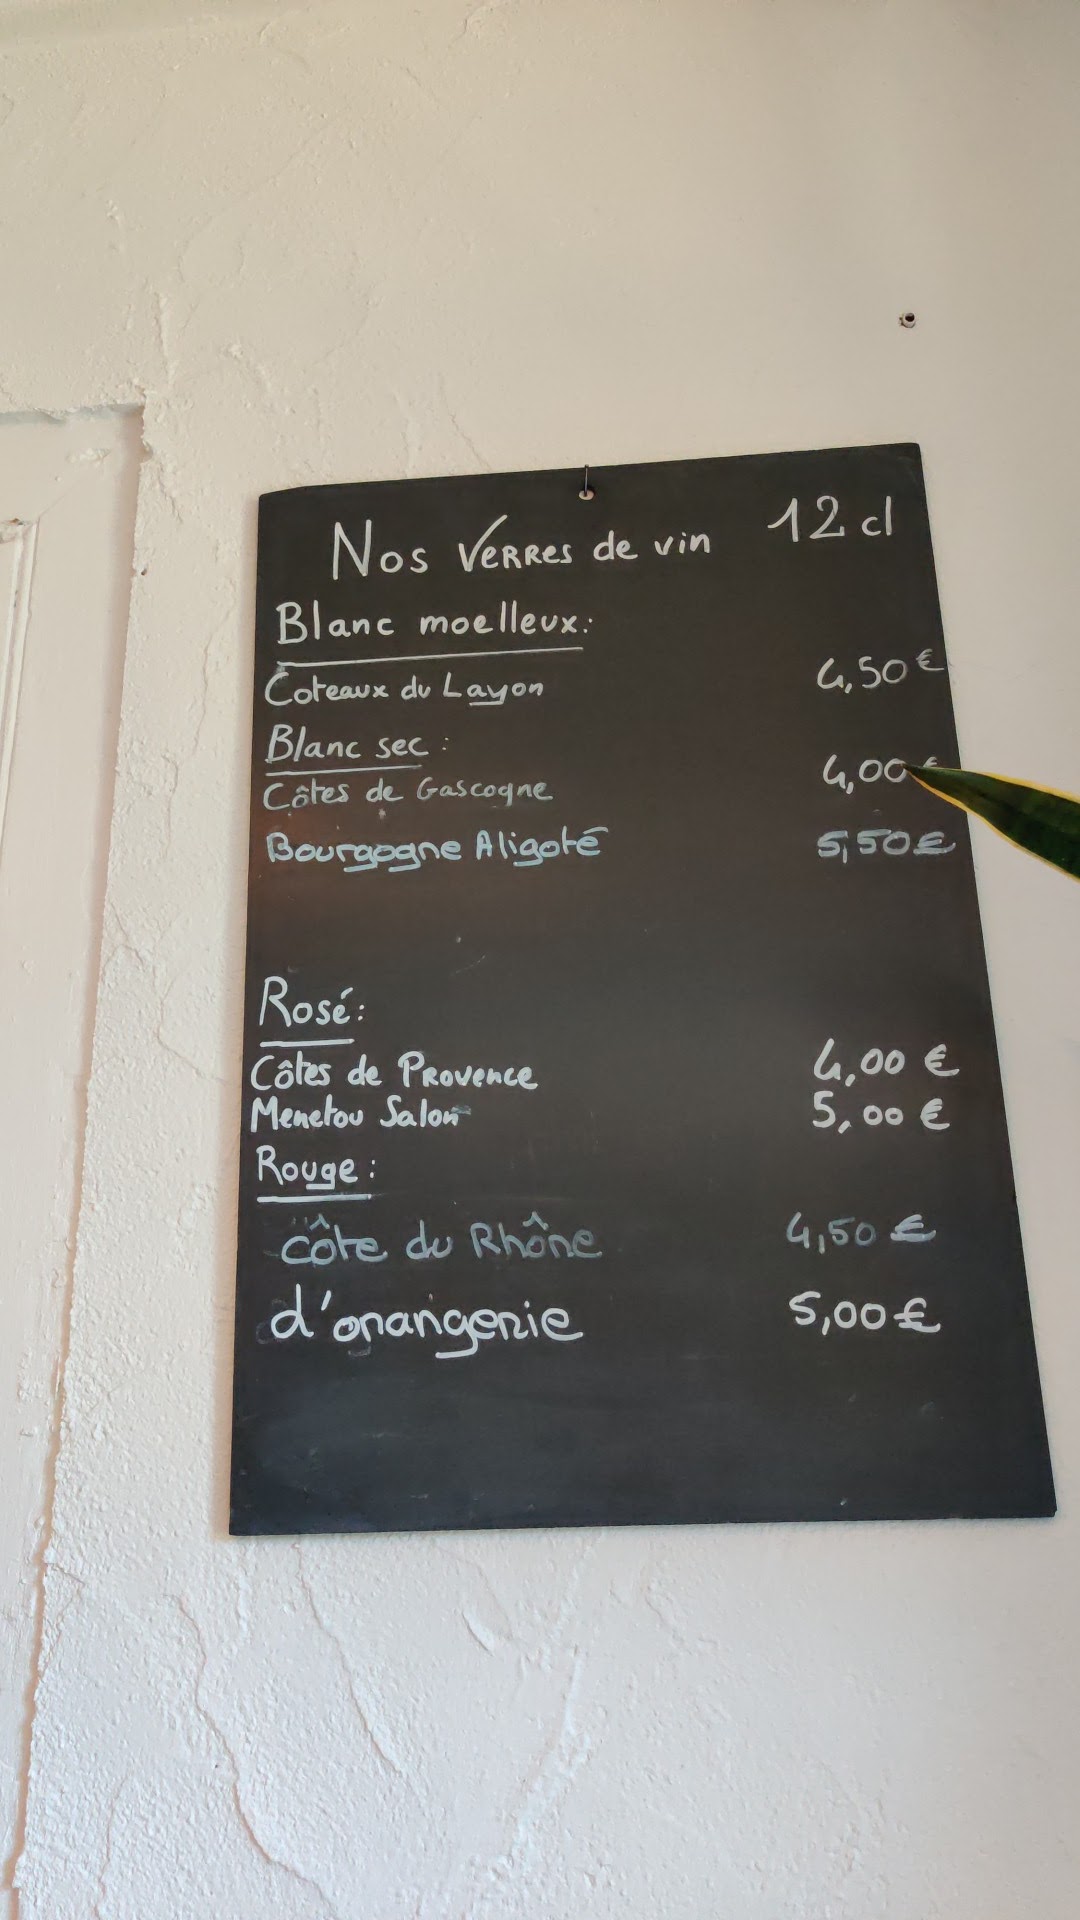 Nos Verres de vin 12 cl
Blanc moelleux:
Côteaux du Layon 4,50 €
Blanc sec :
Côtes de Gascogne 4,00 €
Bourgogne Aligoté 5,50 €
Rosé:
Côtes de Provence 4,00 €
Menetou Salon 5,00 €
Rouge :
Côte du Rhône 4,50 €
d'orangerie 5,00 €